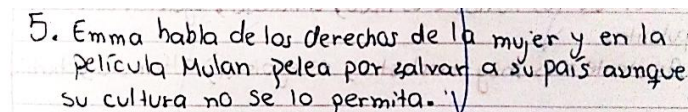 5. Emma habla de los derechos de la mujer y en la
película Mulan pelea por salvar a su país aunque
su cultura no se lo permita.